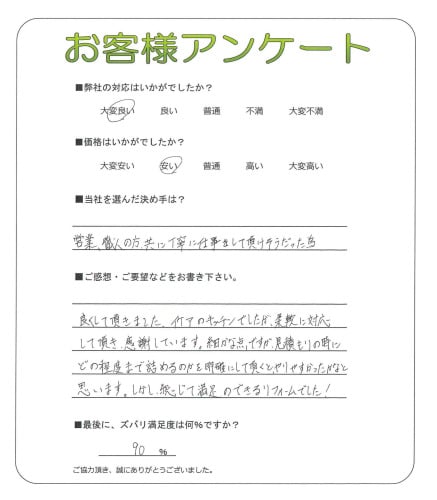 お客様アンケート
■弊社の対応はいかがでしたか？
大変良い 良い 普通 不満 大変不満
■価格はいかがでしたか？
大変安い 安い 普通 高い 大変高い
■当社を選んだ決め手は？
営業、職人の方共に丁寧に仕事をして頂けそうだった為
■ご感想・ご要望などをお書き下さい。
良くして頂きました。イケアのキッチンでしたが、柔軟に対応
して頂き、感謝しています。細かな点ですが、見積もりの時に
どの程度まで詰めるのかを明確にして頂くとやりやすかったかなと
思います。しかし、総じて満足のできるリフォームでした!
■最後に、ズバリ満足度は何%ですか？
90 %
ご協力頂き、誠にありがとうございました。